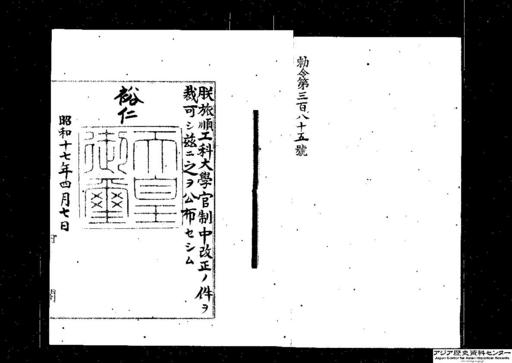 勅令第三百八十五號
朕旅順工科大學官制中改正ノ件ヲ
裁可シ茲ニ之ヲ公布セシム
裕仁
天皇
御璽
昭和十七年四月七日
アジア歴史資料センター
Japan Center for Asian Historical Records